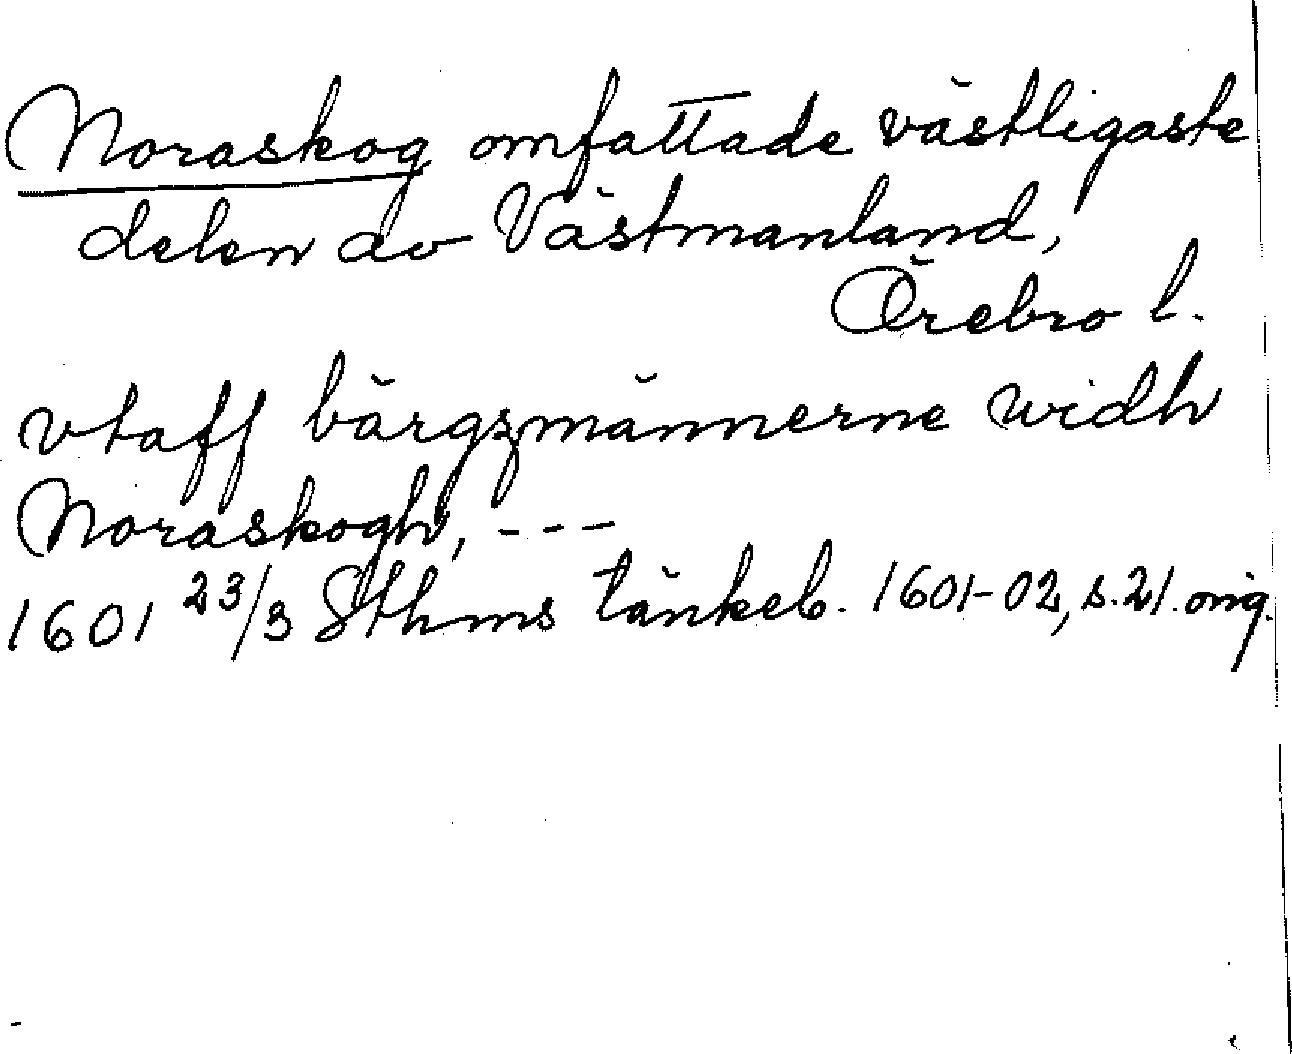 Noraskog omfattade västligaste
delen av Västmanland,
Örebro l.
vtaff bärgzmännerne widh
Noraskogh, ---
1601 23/3 Sthms tänkeb. 1601-02, s. 21. orig.